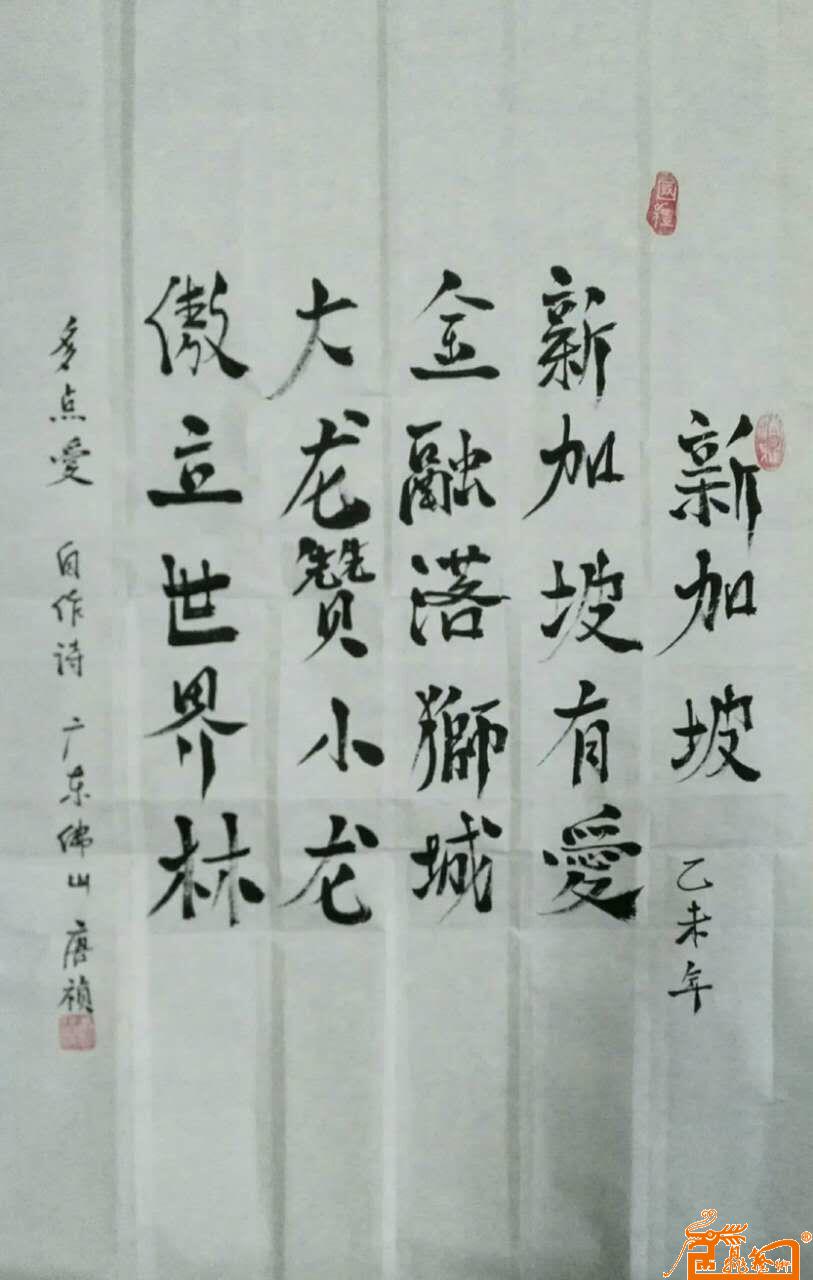 新加坡 乙未年
新加坡有愛
金融落獅城
大龙贊小龙
傲立世界林
多点愛 自作诗 广东佛山 唐祯